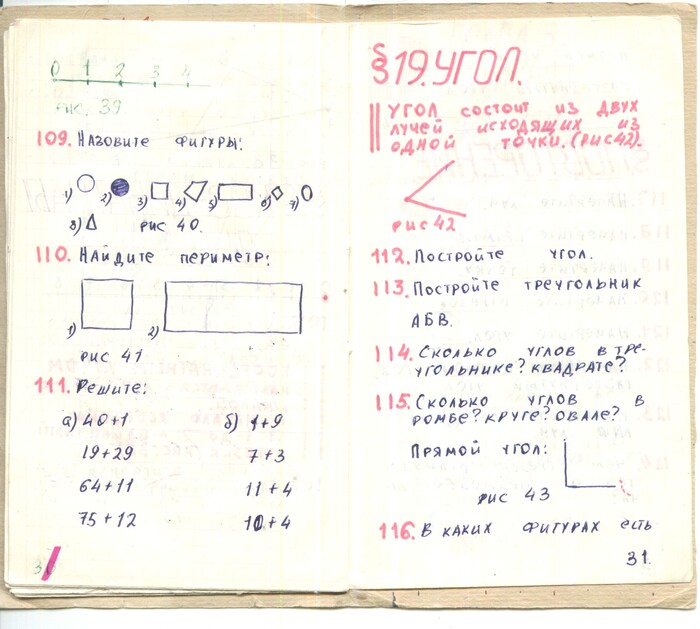 0 1 2 3 4
рис. 39
109. Назовите фигуры:
1) 2) 3) 4) 5) 6) 7)
8) рис 40.
110. Найдите периметр:
1) 2)
рис 41
111. Решите:
а) 40+1 б) 1+9
19+29 7+3
64+11 11+4
75+12 10+4
30
§19. УГОЛ.
Угол состоит из двух
лучей исходящих из
одной точки. (рис 42).
рис 42
112. Постройте угол.
113. Постройте треугольник
АБВ.
114. Сколько углов в тре-
угольнике? квадрате?
115. Сколько углов в
ромбе? круге? овале?
Прямой угол:
рис 43
116. В каких фигурах есть
31.